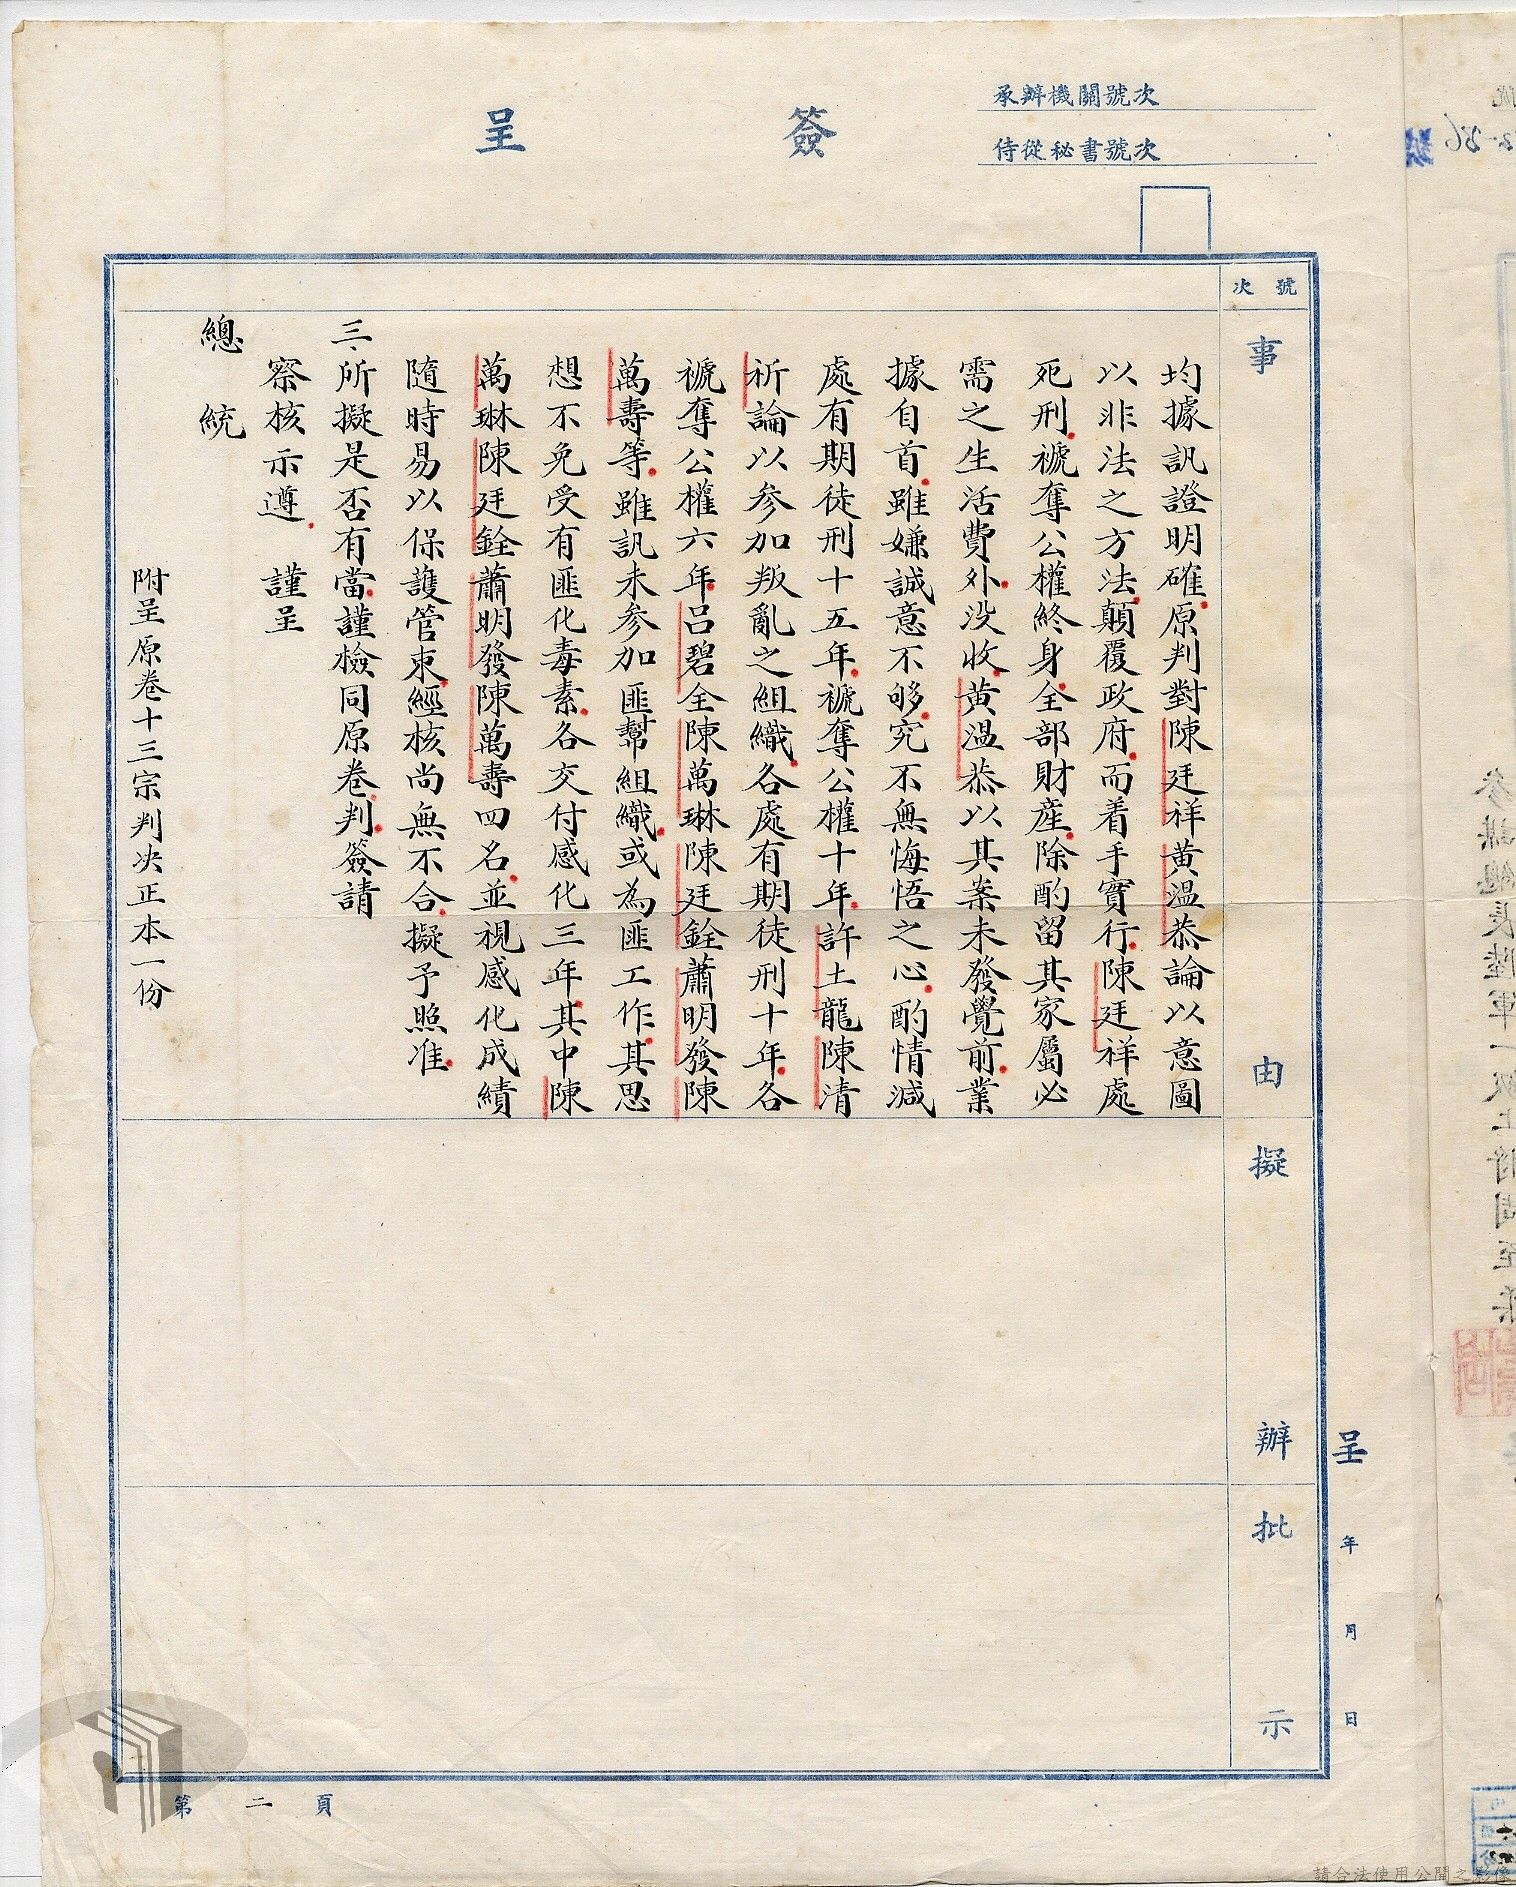 承辦機關號次
侍從秘書號次
簽呈
號次
事由
擬辦
批示
均據訊證明確.原判對陳廷祥黃溫恭論以意圖
以非法之方法.顛覆政府.而着手實行.陳廷祥處
死刑.褫奪公權終身.全部財產.除酌留其家屬必
需之生活費外.沒收.黃溫恭以其案未發覺前.業
據自首.雖嫌誠意不够.究不無悔悟之心.酌情減
處有期徒刑十五年.褫奪公權十年.許土龍陳清
祈論以參加叛亂之組織.各處有期徒刑十年.各
褫奪公權六年.呂碧全陳萬琳陳廷銓蕭明發陳
萬壽等.雖訊未參加匪幫組織.或為匪工作.其思
想不免受有匪化毒素.各交付感化三年.其中陳
萬琳陳廷銓蕭明發陳萬壽四名.並視感化成績
隨時易以保護管束.經核尚無不合.擬予照准.
三.所擬是否有當.謹檢同原卷.判.簽請
察核示遵.謹呈
總統
附呈原卷十三宗判決正本一份
呈 年 月 日
第二頁
參謀總長陸軍一級上將周至柔
請合法使用公開之影像